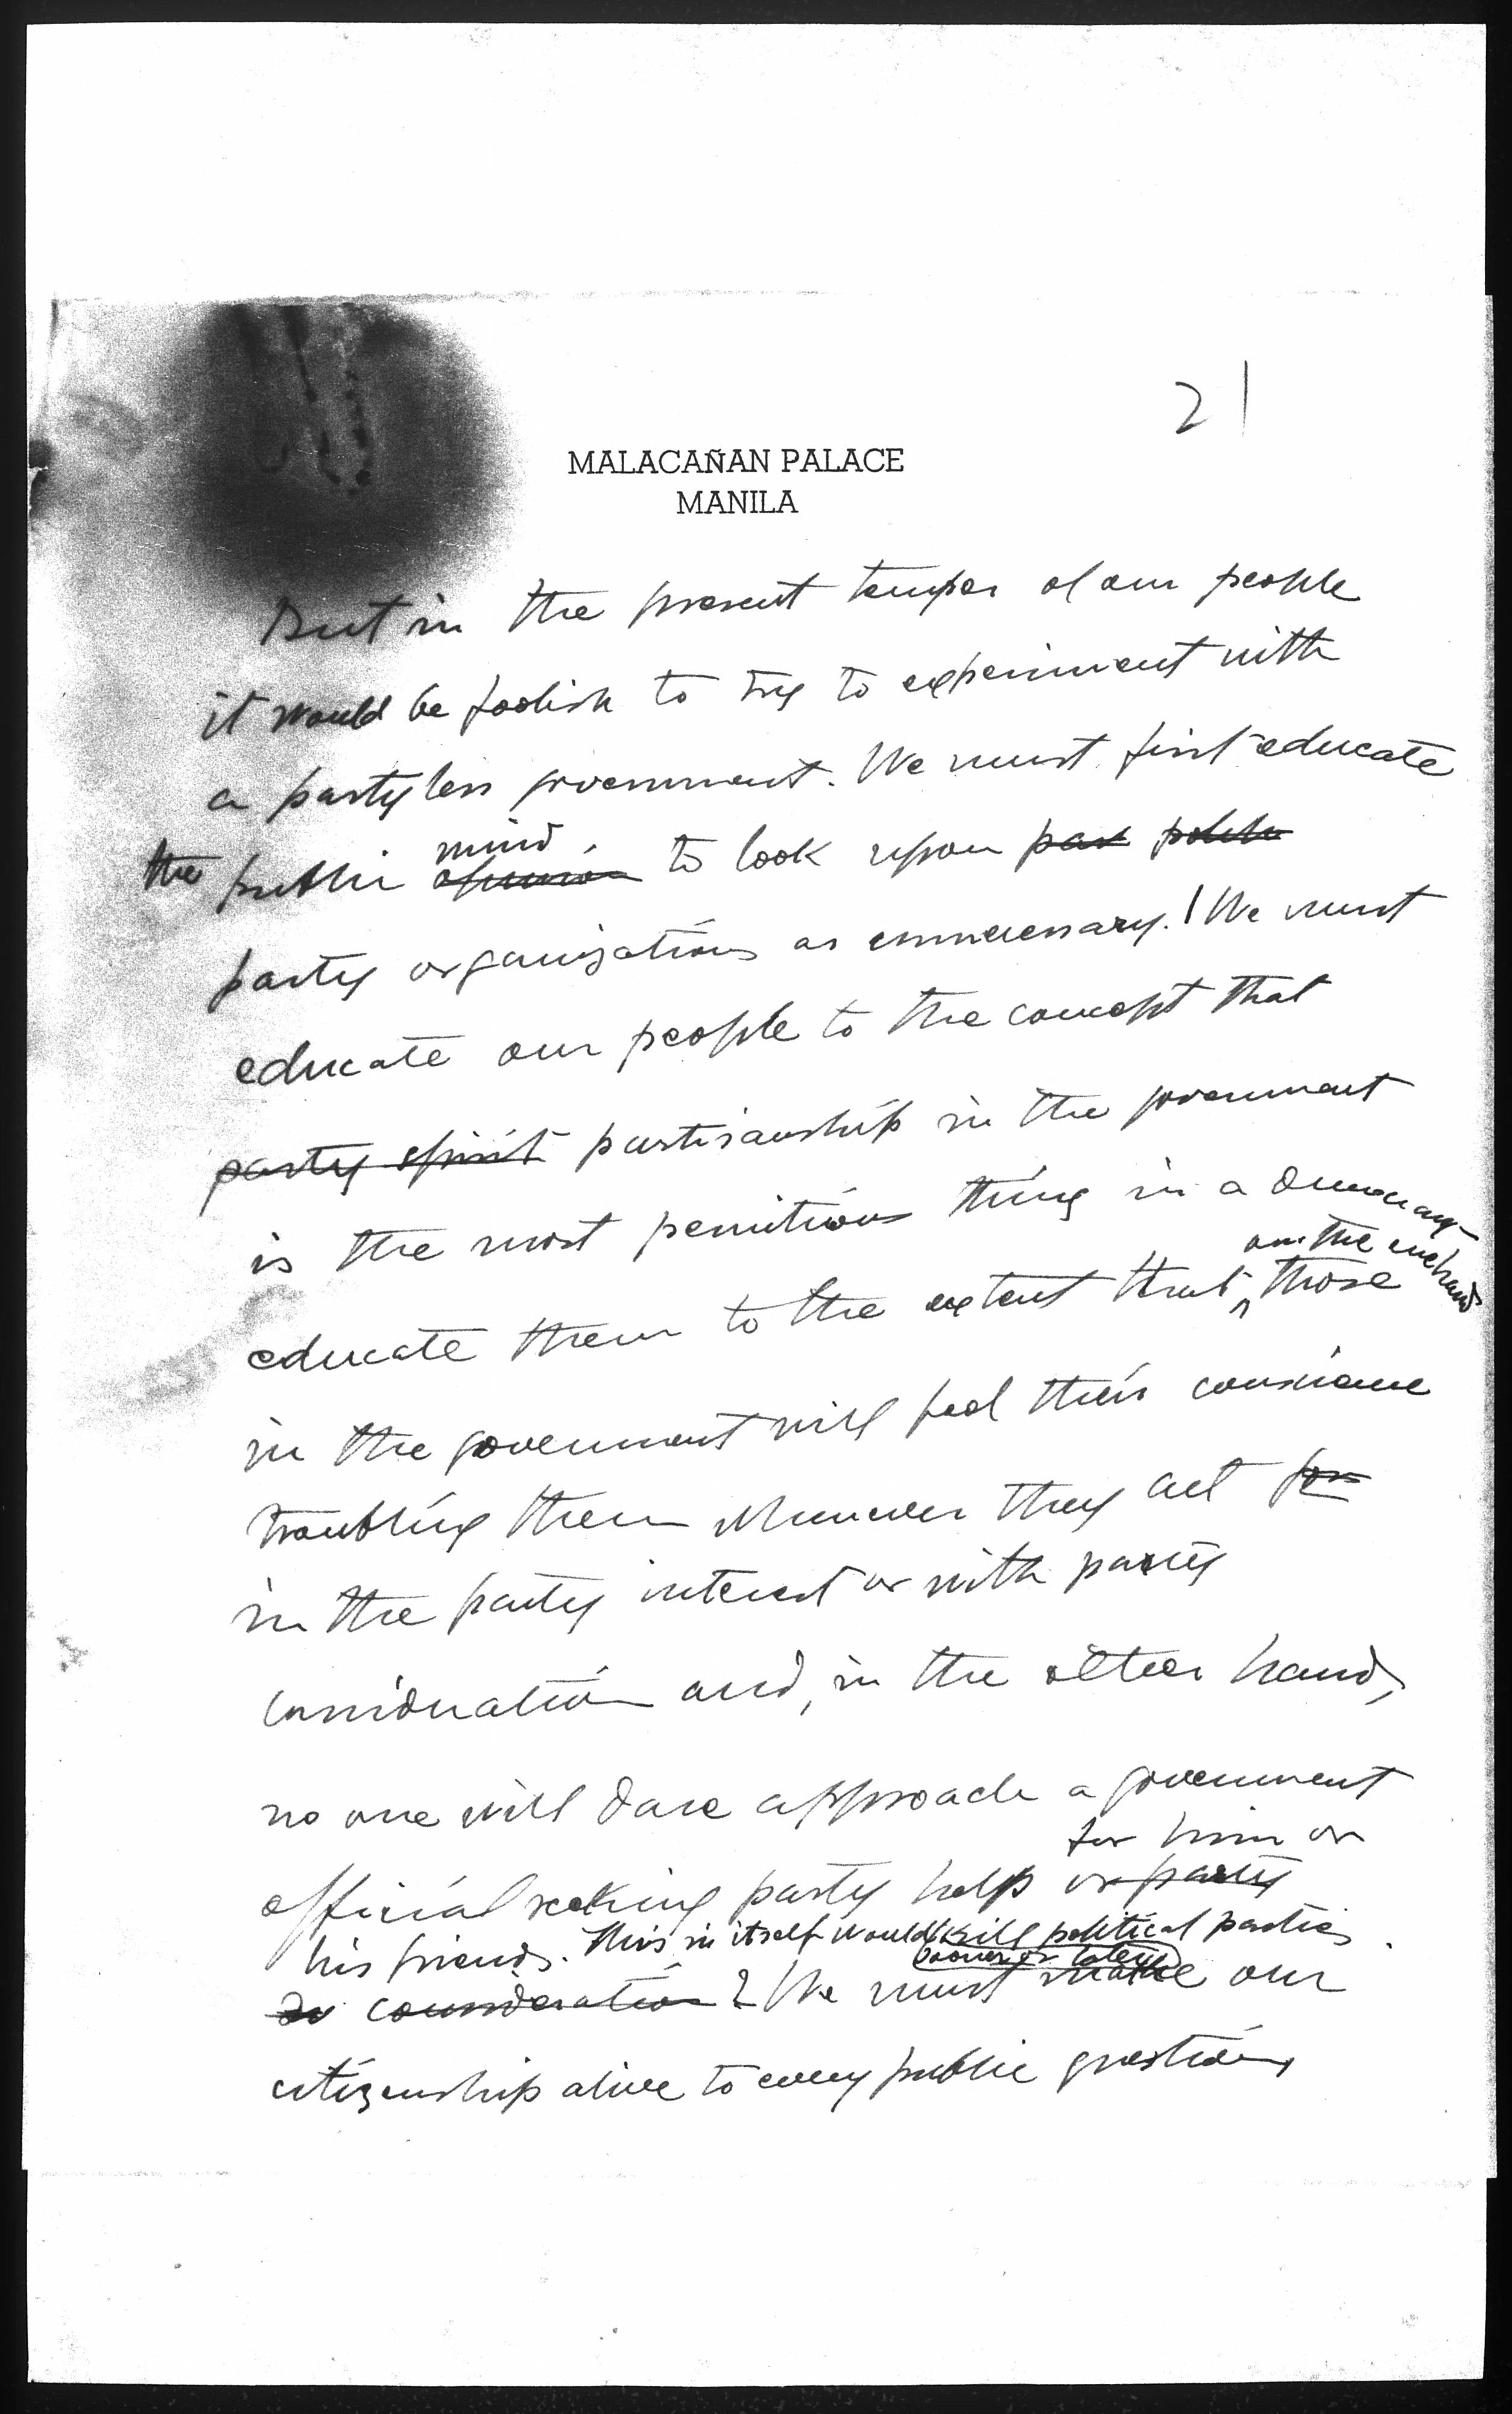 21
MALACAÑAN PALACE
MANILA
But in the present temper of our people
it would be foolish to try to experiment with
a partyless government. We must first educate
mind
the public opinion to look upon par
party organizations as unnecessary. We must
educate our people to the concept that
party spirit partisanship in the government
is the most pernitious thing in a democracy
on the one hand
educate them to the extent that those
in the government will feel their conscience
troubling them whenever they act for
in the party interest or with party
consideration and, in the other hand,
no one will dare approach a government
for him or
official seeking party help or party
his friends. This in itself would kill political parties.
sooner or later
consideration We must make our
citizenship alive to every public question,